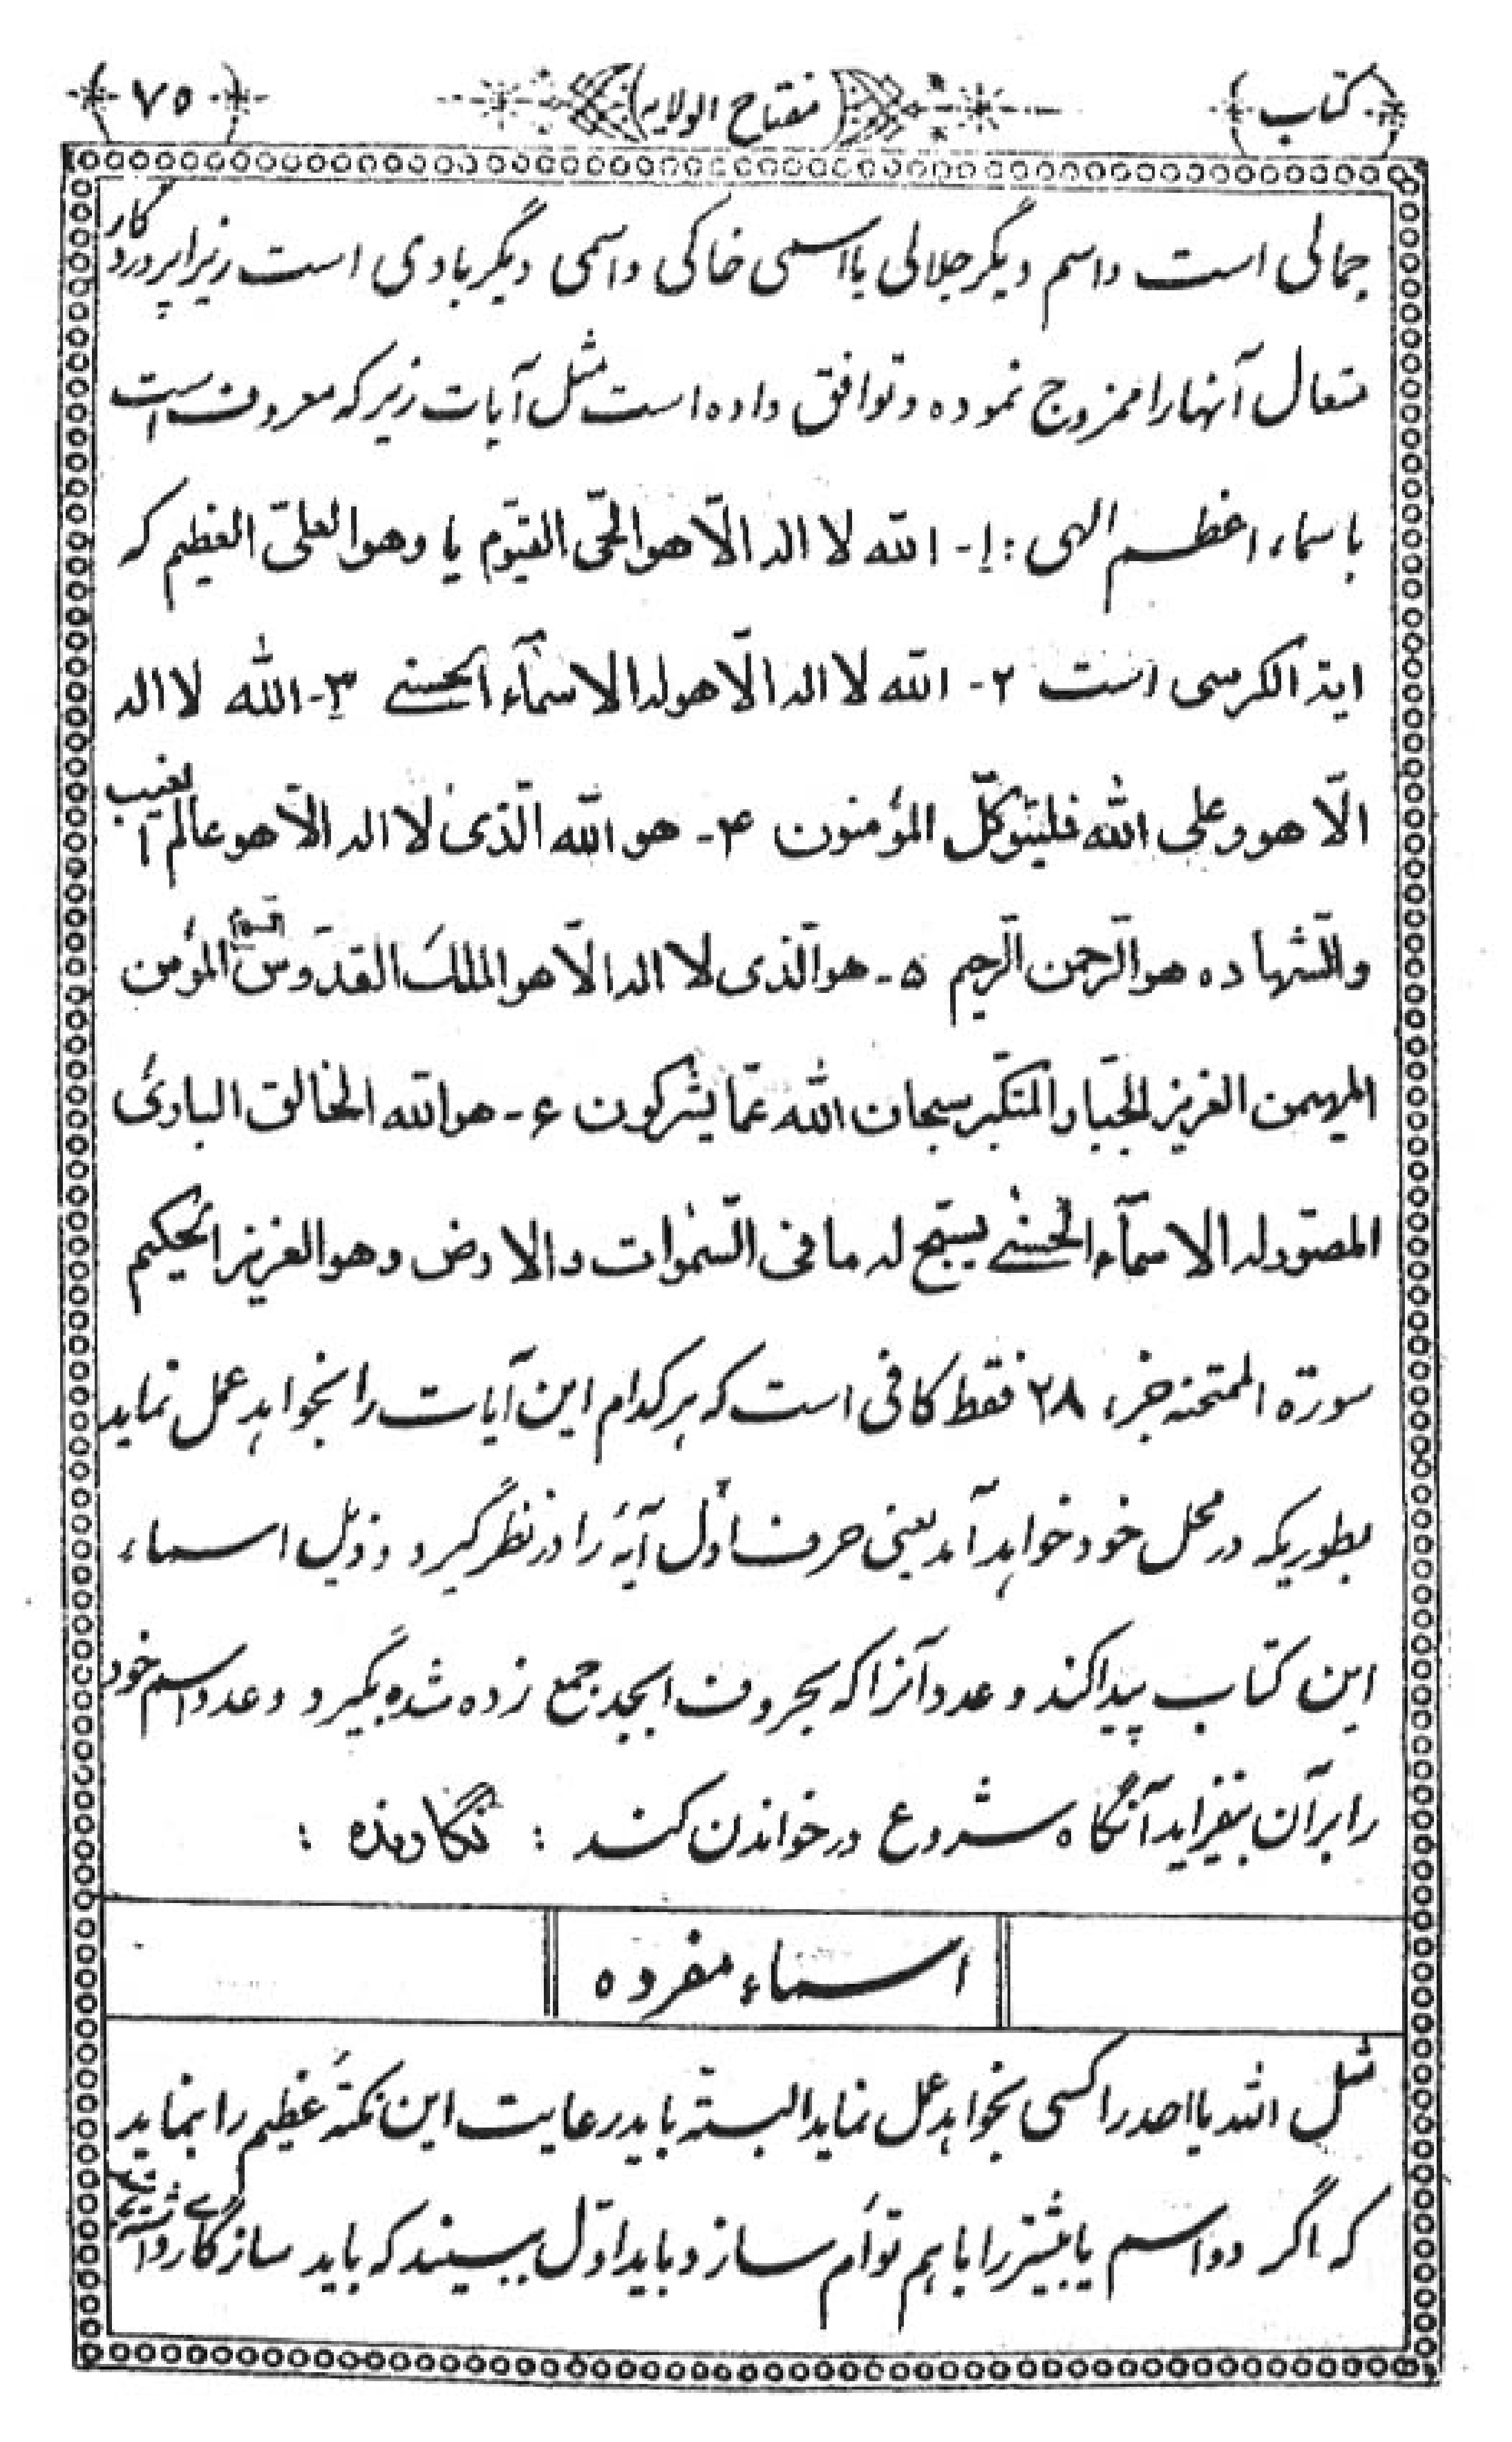 کتاب (مفتاح الولایه) ۷۵
جمالی است واسم دیگر جلالی یا اسمی خاکی واسمی دیگر بادی است زیرا پروردگار
متعال آنها را ممزوج نموده وتوافق داده است مثل آیات زیر که معروف است
باسماء اعظم الهی : ۱- الله لا اله الّا هو الحیّ القیّوم یا وهو العلیّ العظیم که
ایة الکرسی است ۲- الله لا اله الّا هو له الاسمآء الحسنی ۳- الله لا اله
الّا هو وعلی الله فلیتوکّل المؤمنون ۴- هو الله الّذی لا اله الّا هو عالم الغیب
والشّهاده هو الرّحمن الرّحیم ۵- هو الّذی لا اله الّا هو الملک القدّوس السلام المؤمن
المهیمن العزیز الجبّار المتکبّر سبحان الله عمّا یشرکون ۶- هو الله الخالق البارئ
المصوّر له الاسمآء الحسنی یسبّح له ما فی السّموات والارض وهو العزیز الحکیم
سورة الممتحنه جزء ۲۸ فقط کافی است که هر کدام این آیات را بخواهد عمل نماید
بطوریکه در محل خود خواهد آمد یعنی حرف اوّل آیهٔ را در نظر گیرد و ذیل اسماء
این کتاب پیدا کند و عدد آنرا که بحروف ابجد جمع زده شده بگیرد و عدد اسم خود
را بر آن بیفزاید آنگاه شروع در خواندن کند : نگارنده :
اسماء مفرده
مثل الله یا احد را کسی بخواهد عمل نماید البسته باید رعایت این نکتهٔ عظیم را بنماید
که اگر دو اسم یا بیشتر را باهم توأم سازد باید اوّل ببیند که باید سازگار و